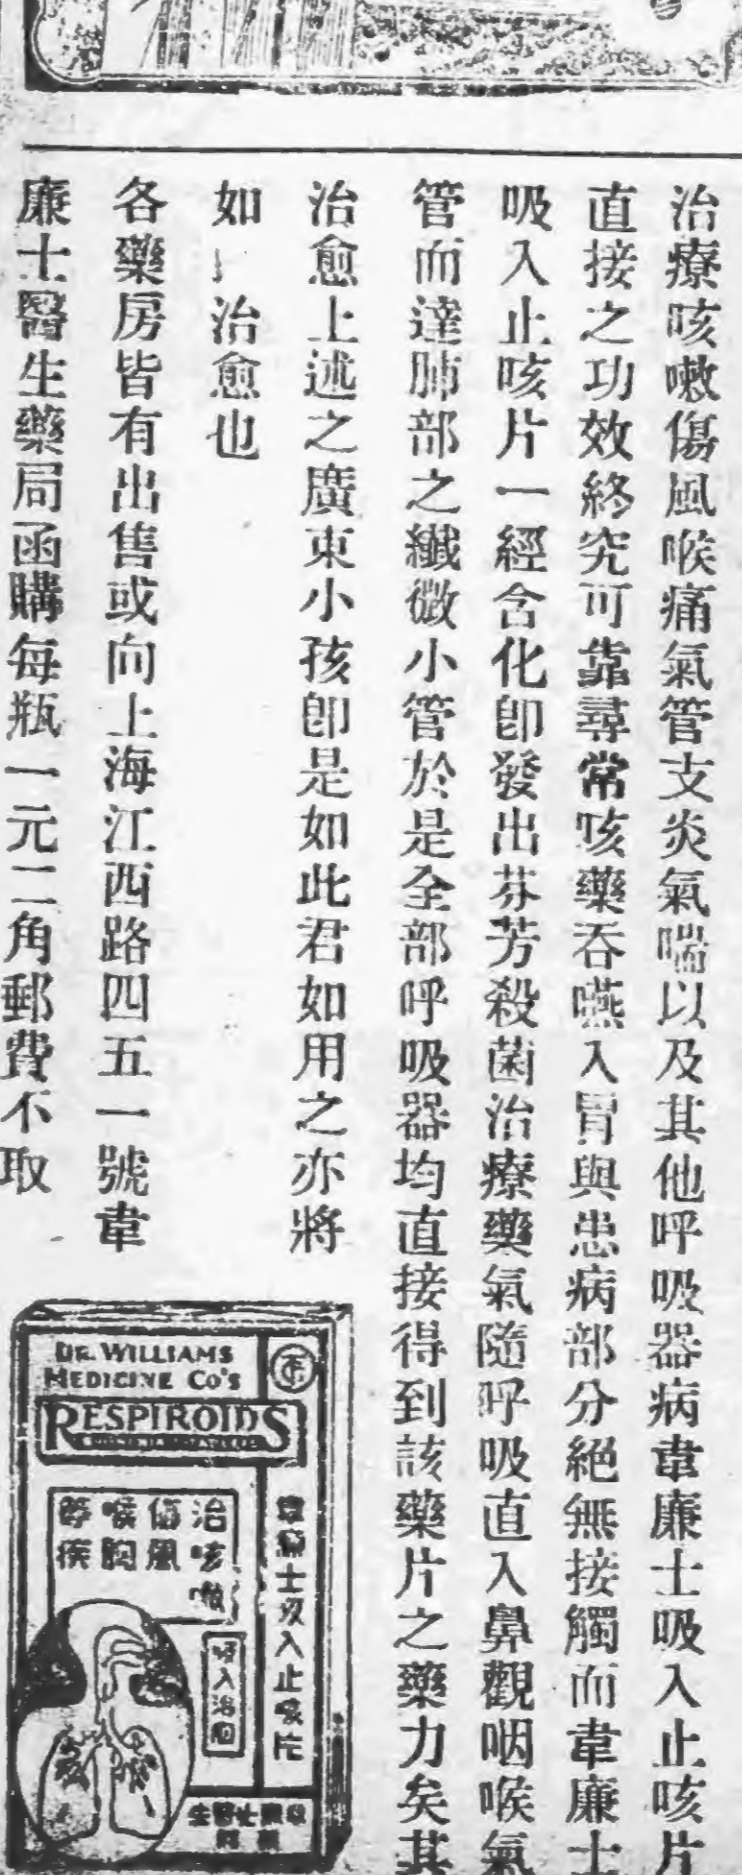 治療咳嗽傷風喉痛氣管支炎氣喘以及其他呼吸器病韋廉士吸入止咳片
直接之功效終究可靠尋常咳藥吞嚥入胃與患病部分絕無接觸而韋廉士
吸入止咳片一經含化卽發出芬芳殺菌治療藥氣隨呼吸直入鼻觀咽喉氣
管而達肺部之纖微小管於是全部呼吸器均直接得到該藥片之藥力矣其
治愈上述之廣東小孩卽是如此君如用之亦將
如 治愈也
各藥房皆有出售或向上海江西路四五一號韋
廉士醫生藥局函購每瓶一元二角郵費不取
DR. WILLIAMS
MEDICINE CO'S
RESPIROIDS
韋廉士吸入止咳片
治咳嗽
傷風
喉
吸入治